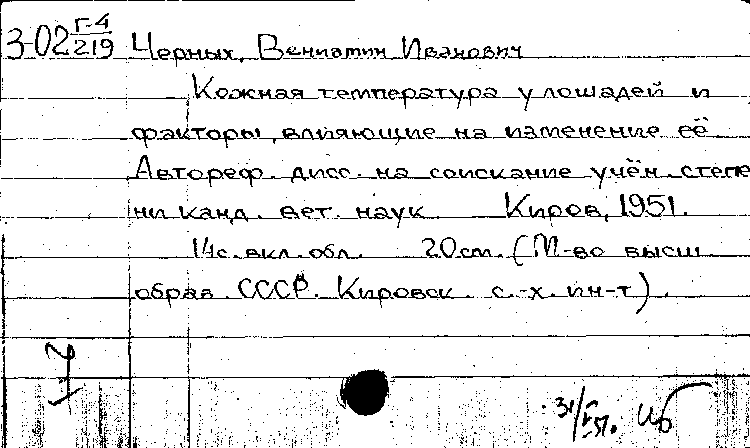 3-02 Г-4/219 Черных, Вениамин Иванович
Кожная температура у лошадей и
факторы, влияющие на изменение её
Автореф. дисс. на соискание учён. степе
ни канд. вет. наук Киров, 1951.
14с. вкл. обл. 20см. (М-во высш.
образ. СССР. Кировск. с.-х. ин-т).